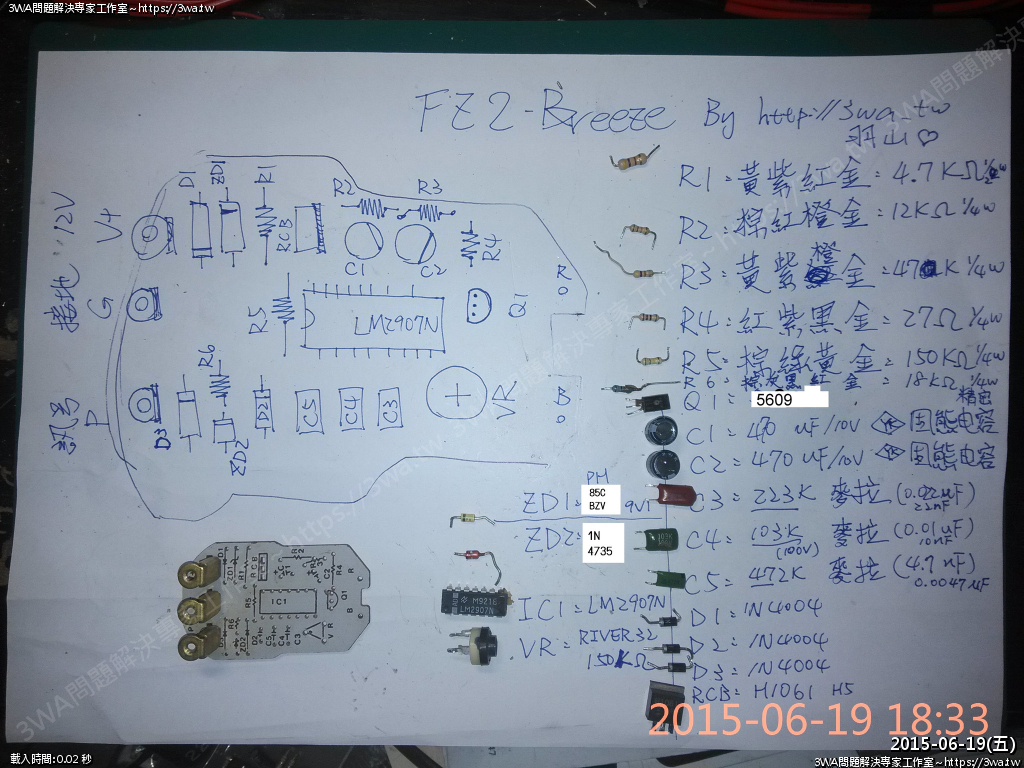 3WA問題解決專家工作室~https://3wa.tw
3WA問題解決專家工作室~https://3wa.tw
FZ2-Breeze By http://3wa.tw
羽山♡
R1=黃紫紅金=4.7KΩ 1/2w
R2=棕紅橙金=12KΩ 1/4w
R3=黃紫橙金=47K 1/4w
R4=紅紫黑金=27Ω 1/4w
R5=棕綠黃金=150KΩ 1/4w
R6=棕灰黑紅金=18KΩ 1/4w
精密
Q1= 5609
C1=470 uF/10V 固態电容
C2=470 uF/10V 固態电容
C3=223K 麥拉(0.022uF)
22nF
C4=103K 麥拉(0.01uF)
(100V) 10nF
C5=472K 麥拉(4.7nF)
0.0047uF
D1=1N4004
D2=1N4004
D3=1N4004
RCB=H1061 H5
PH
ZD1= 85C
BZV 9V1
ZD2= 1N
4735
IC1=LM2907N
VR=RIVER32
150KΩ
V+ 12V
G 接地
P 訊号
D1
ZD1
R1
RCB
R2
R3
C1
C2
R4
R5
LM2907N
Q1
R
B
R6
D3
ZD2
D2
C5
C4
C3
VR
D1
ZD1
R1
RCB
R2
C2
R4
R
R5
IC1
Q1
B
R6
ZD2
D2
C5
C4
C3
VR
M921E
LM2907N
2015-06-19 18:33
2015-06-19(五)
載入時間:0.02 秒
3WA問題解決專家工作室~https://3wa.tw